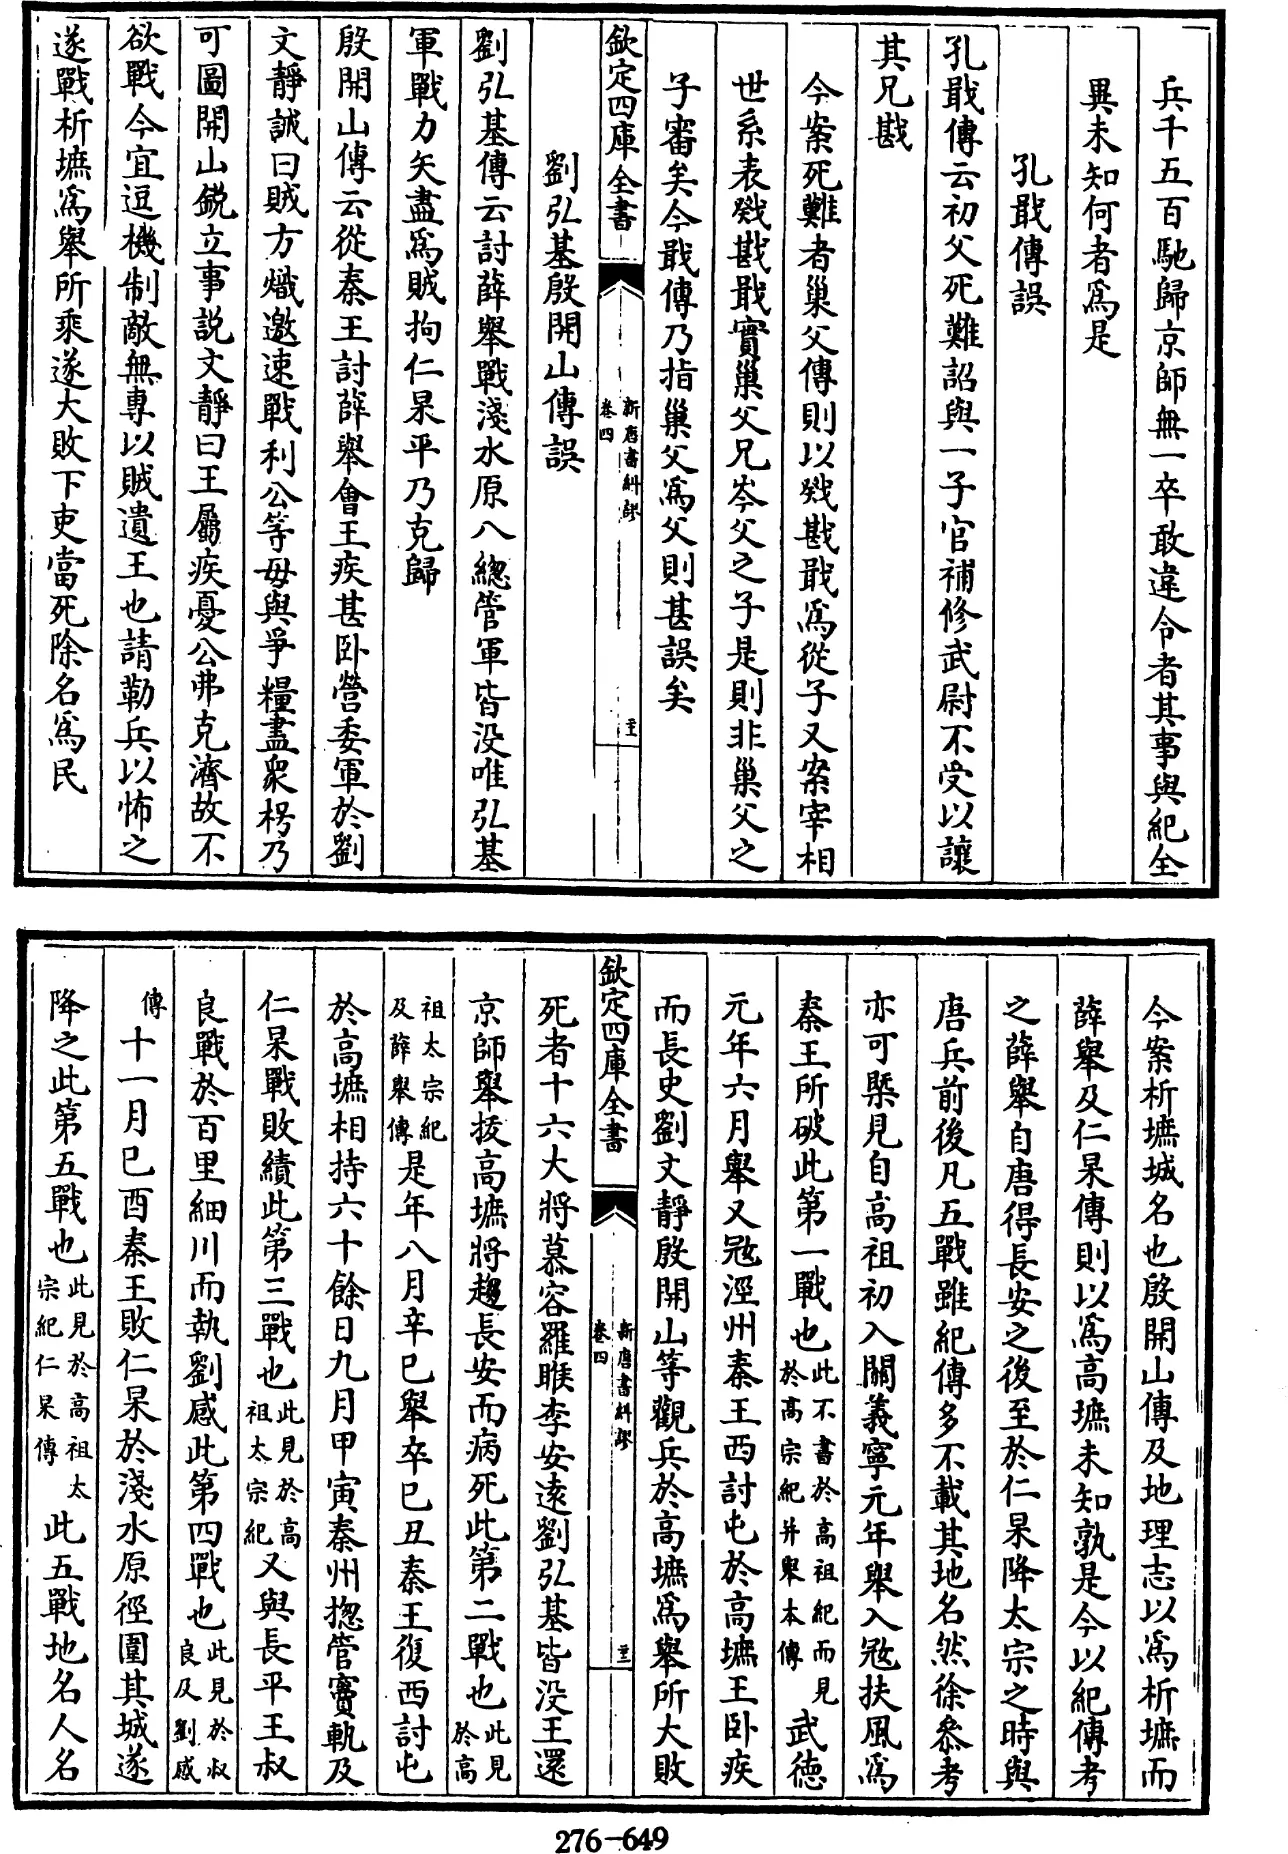 兵千五百馳歸京師無一卒敢違令者其事與紀全
異未知何者爲是
孔戢傳誤
孔戢傳云初父死難詔與一子官補修武尉不受以讓
其兄戡
今案死難者巢父傳則以戣戡戢爲從子又案宰相
世系表戣戡戢實巢父兄岑父之子是則非巢父之
子審矣今戢傳乃指巢父爲父則甚誤矣
欽定四庫全書
新唐書糾謬
卷四
劉弘基殷開山傳誤
劉弘基傳云討薛舉戰淺水原八總管軍皆没唯弘基
軍戰力矢盡爲賊拘仁杲平乃克歸
殷開山傳云從秦王討薛舉會王疾甚卧營委軍於劉
文靜誡曰賊方熾邀速戰利公等毋與爭糧盡衆枵乃
可圖開山鋭立事説文靜曰王屬疾憂公弗克濟故不
欲戰今宜逗機制敵無專以賊遺王也請勒兵以怖之
遂戰析墌爲舉所乘遂大敗下吏當死除名爲民
今案析墌城名也殷開山傳及地理志以爲析墌而
薛舉及仁杲傳則以爲高墌未知孰是今以紀傳考
之薛舉自唐得長安之後至於仁杲降太宗之時與
唐兵前後凡五戰雖紀傳多不載其地名然徐叅考
亦可槩見自高祖初入關義寧元年舉入宼扶風爲
秦王所破此第一戰也此不書於高祖紀而見於高宗紀并舉本傳武德
元年六月舉又宼涇州秦王西討屯於高墌王卧疾
而長史劉文靜殷開山等觀兵於高墌爲舉所大敗
欽定四庫全書
新唐書糾謬
卷四
死者十六大將慕容羅睺李安逺劉弘基皆没王還
京師舉拔高墌將趨長安而病死此第二戰也此見於高
祖太宗紀及薛舉傳是年八月辛巳舉卒巳丑秦王復西討屯
於高墌相持六十餘日九月甲寅秦州揔管竇軌及
仁杲戰敗績此第三戰也此見於高祖太宗紀又與長平王叔
良戰於百里細川而執劉感此第四戰也此見於叔良及劉感
傳十一月巳酉秦王敗仁杲於淺水原徑圍其城遂
降之此第五戰也此見於高祖太宗紀仁杲傳此五戰地名人名
276-649